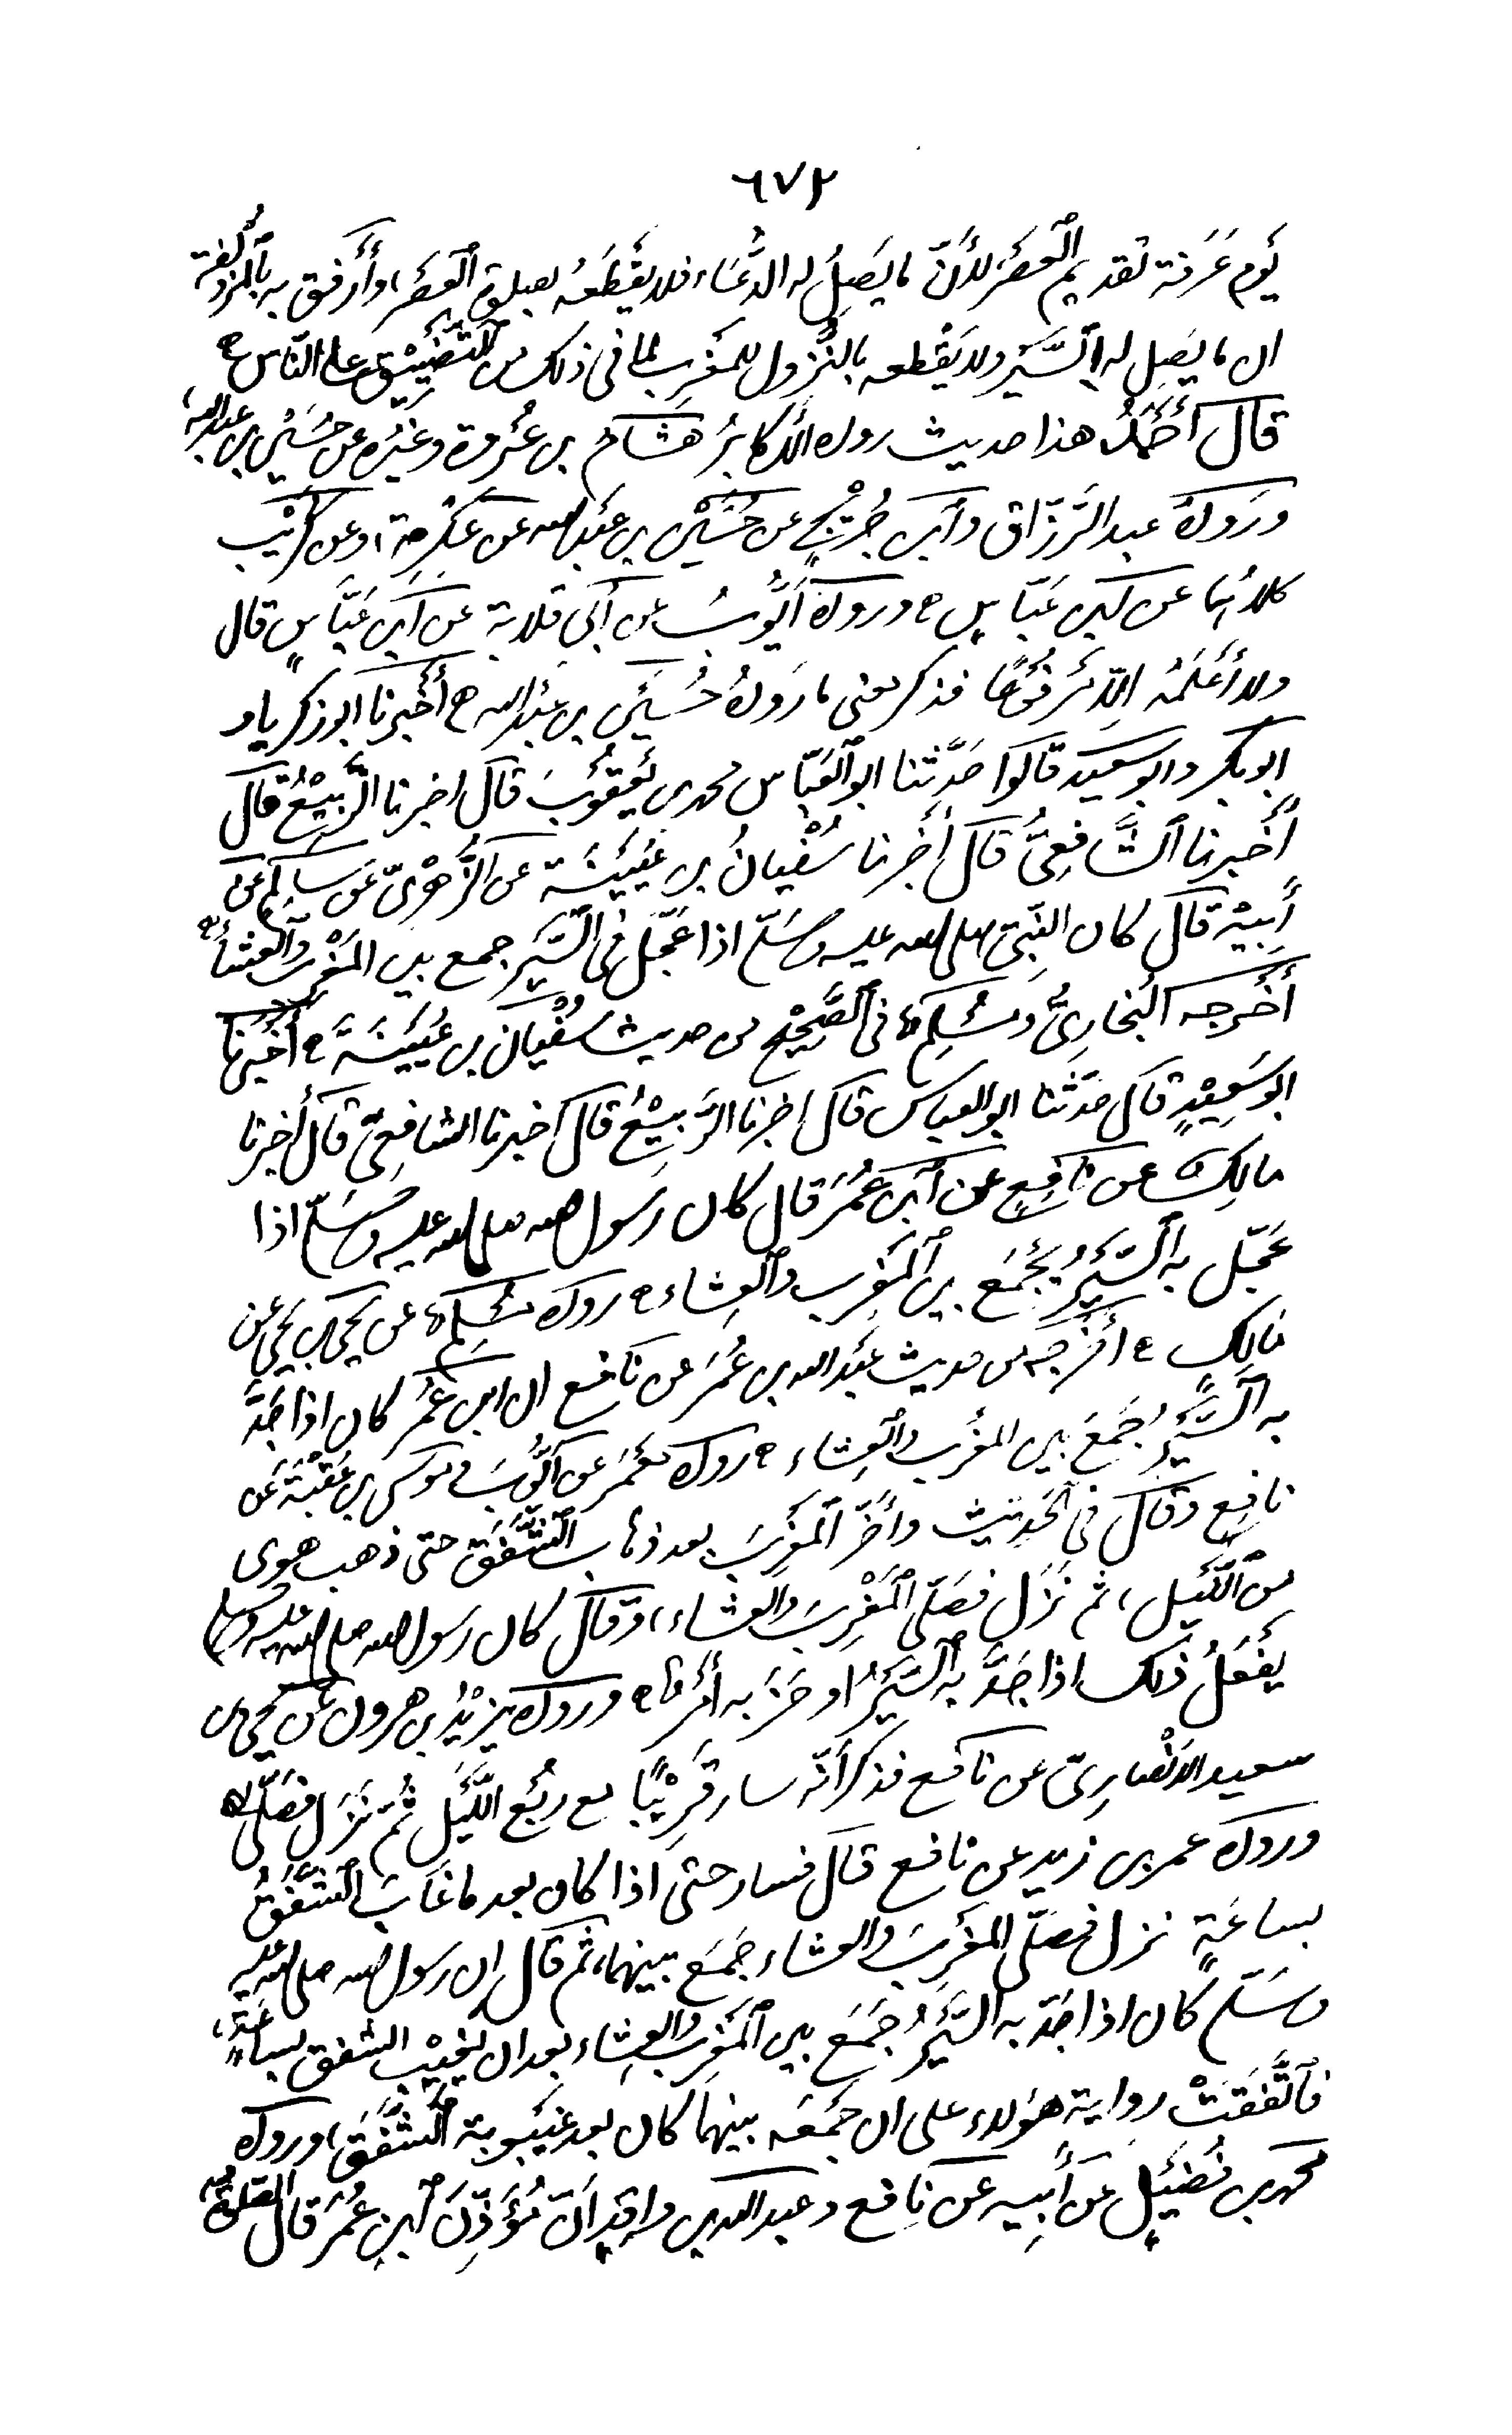 ٦٧٢
يوم عرفة تقديم العصر لأن ما يصل له الدعاء فلا يقطعه بصلوة العصر، وأرفق به بالمزدلفة
ان ما يصل له السير ولا يقطعه بالنزول للمغرب لما فى ذلك من التضييق على الناس
قال أحمد هذا حديث رواه الأكابر هشام بن عروة وغيره عن حسين بن عبد الله،
ورواه عبد الرزاق وابن جريج عن حسين بن عبد الله عن عكرمة، وعن كريب
كلاهما عن ابن عباس ورواه أيوب عن أبى قلابة عن ابن عباس قال
ولا أعلمه الا مرفوعا فذكر معنى ما رواه حسين بن عبد الله أخبرنا ابو زكريا و
ابو بكر وابو سعيد قالوا حدثنا ابو العباس محمد بن يعقوب قال اخبرنا الربيع قال
أخبرنا الشافعى قال أخبرنا سفيان بن عيينة عن الزهرى عن سالم عن
أبيه قال كان النبى صلى الله عليه وسلم اذا عجل فى السير جمع بين المغرب والعشاء
أخرجه البخارى ومسلم فى الصحيح من حديث سفيان بن عيينة أخبرنا
ابو سعيد قال حدثنا ابو العباس قال اخبرنا الربيع قال اخبرنا الشافعى قال أخبرنا
مالك عن نافع عن ابن عمر قال كان رسول الله صلى الله عليه وسلم اذا
عجل به السير يجمع بين المغرب والعشاء رواه مسلم عن يحيى بن يحيى عن
مالك أخرجه من حديث عبد الله بن عمر عن نافع ان ابن عمر كان اذا جد
به السير جمع بين المغرب والعشاء رواه معمر عن ايوب وموسى بن عقبة عن
نافع وقال فى الحديث وأخر المغرب بعد ذهاب الشفق حتى ذهب هوى
من الليل، ثم نزل فصلى المغرب والعشاء، وقال كان رسول الله صلى الله عليه وسلم
يفعل ذلك اذا جد به السير او حزبه أمر ورواه يزيد بن هرون عن يحيى بن
سعيد الانصارى عن نافع فذكر أنه سار قريبا من ربع الليل ثم نزل فصلى
ورواه عمر بن زيد عن نافع قال فسار حتى اذا كان بعد ما غاب الشفق
بساعة نزل فصلى المغرب والعشاء جمع بينهما، ثم قال ان رسول الله صلى الله عليه
وسلم كان اذا جد به السير جمع بين المغرب والعشاء بعد ان يغيب الشفق بساعة،
فاتفقت رواية هؤلاء على ان جمعه بينهما كان بعد غيبوبة الشفق، وروى
محمد بن فضيل عن أبيه عن نافع وعبد الله بن واقد ان مؤذن ابن عمر قال الصلوة